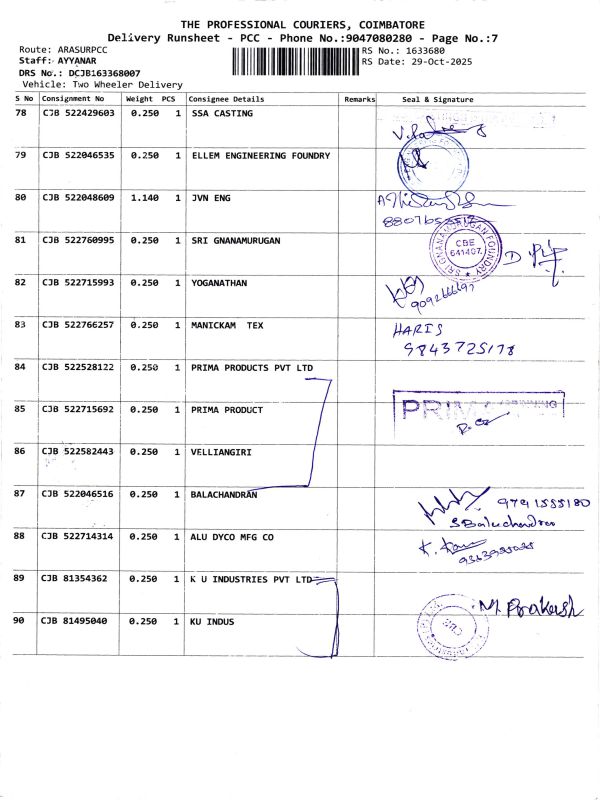 THE PROFESSIONAL COURIERS, COIMBATORE
Delivery Runsheet - PCC - Phone No.:9047080280 - Page No.:7
Route: ARASURPCC
RS No.: 1633680
Staff: AYYANAR
RS Date: 29-Oct-2025
DRS No.: DCJB163368007
Vehicle: Two Wheeler Delivery
S No Consignment No Weight PCS Consignee Details Remarks Seal & Signature
78 CJB 522429603 0.250 1 SSA CASTING
79 CJB 522046535 0.250 1 ELLEM ENGINEERING FOUNDRY
80 CJB 522048609 1.140 1 JVN ENG
81 CJB 522760995 0.250 1 SRI GNANAMURUGAN
SRI GNANAMURUGAN FOUNDRY
CBE
641407.
82 CJB 522715993 0.250 1 YOGANATHAN
83 CJB 522766257 0.250 1 MANICKAM TEX HARIS
9843725178
84 CJB 522528122 0.250 1 PRIMA PRODUCTS PVT LTD
85 CJB 522715692 0.250 1 PRIMA PRODUCT PRIMA
86 CJB 522582443 0.250 1 VELLIANGIRI
87 CJB 522046516 0.250 1 BALACHANDRAN 9791555180
S Balachandran
88 CJB 522714314 0.250 1 ALU DYCO MFG CO
89 CJB 81354362 0.250 1 K U INDUSTRIES PVT LTD
M Prakash
90 CJB 81495040 0.250 1 KU INDUS